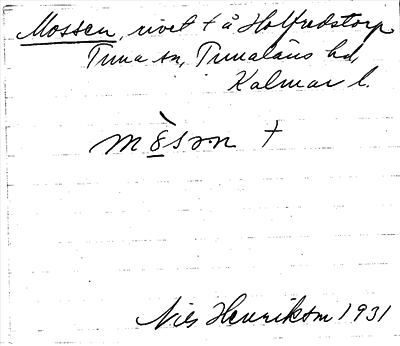 Mossen, rivet t å Holfredstorp
Tuna sn, Tunaläns hd,
Kalmar l.
mòsɘn †
Nils Henrikson 1931